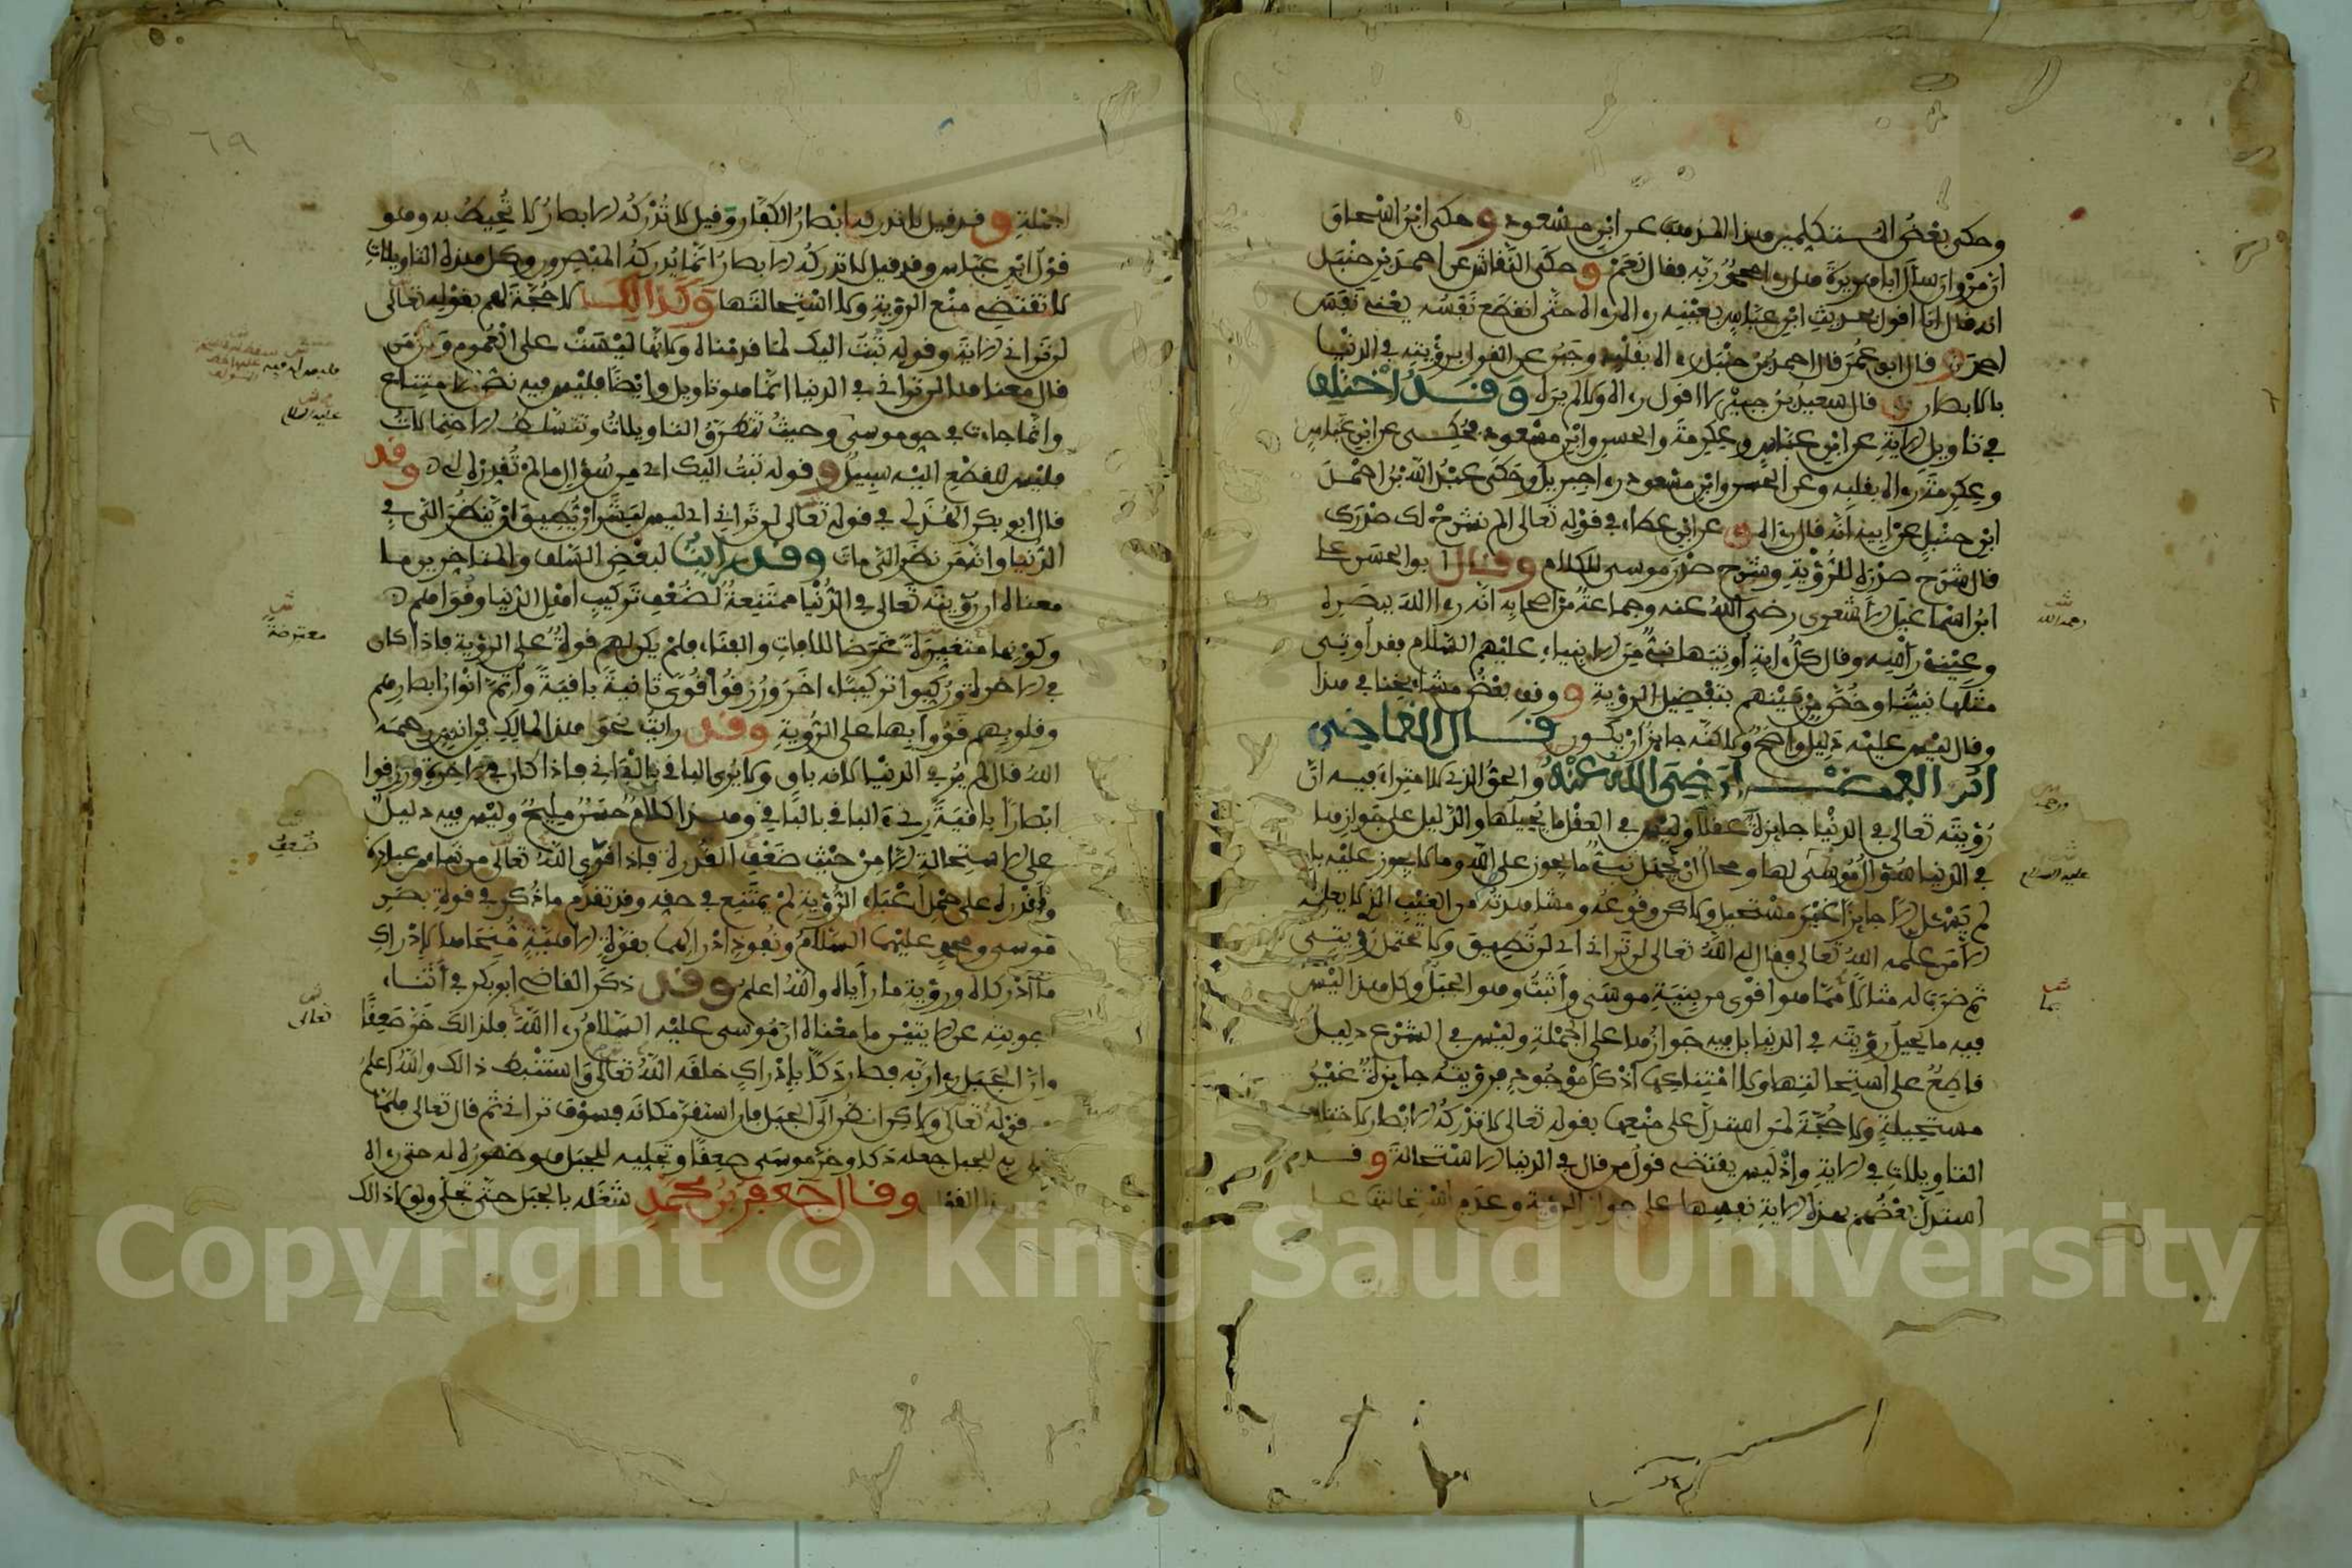 وحكى بعض المتكلمين هذا المذهب عن ابن مسعود وحكى ابن اسحاق
ان مروان سأل ابا هريرة هل رءا محمد ربه فقال نعم وحكى النقاش عن احمد بن حنبل
انه قال انا اقول بحديث ابن عباس بعينه رءاه رءاه حتى انقطع نفسه يعني نفس
احمد وقال ابو عمر قال احمد بن حنبل رءاه بقلبه وجبن عن القول برؤيته في الدنيا
بالابصار وقال سعيد بن جبير لا اقول رءاه ولا لم يره وقد اختلف
في تاويل الاية عن ابن عباس وعكرمة والحسن وابن مسعود فحكى عن ابن عباس
وعكرمة رءاه بقلبه وعن الحسن وابن مسعود رءا جبريل وحكى عبد الله بن احمد
ابن حنبل عن ابيه انه قال رءاه وعن ابن عطاء في قوله تعالى الم نشرح لك صدرك
قال شرح صدره للرؤية وشرح صدر موسى للكلام وقال ابو الحسن علي
ابن اسماعيل الاشعري رضي الله عنه وجماعة من اصحابه انه رءا الله ببصره
وعيني رأسه وقال كل اية أوتيها نبي من الانبياء عليهم السلام فقد أوتي
مثلها نبينا وخص من بينهم بتفضيل الرؤية ووقف بعض مشايخنا في هذا
وقال ليس عليه دليل واضح ولاكنه جايز ان يكون قال القاضي
ابو الفضل رضي الله عنه والحق الذي لا امتراء فيه ان
رؤيته تعالى في الدنيا جايزة عقلا وليس في العقل ما يحيلها والدليل على جوازها
في الدنيا سؤال موسى لها ومحال ان يجهل نبي ما يجوز على الله وما لا يجوز عليه بل
لم يسئل الا جايزا غير مستحيل ولاكن وقوعه ومشاهدته من الغيب الذي لا يعلمه
الا من علمه الله تعالى فقال له الله تعالى لن تراني اي لن تطيق ولا تحتمل رؤيتي
ثم ضرب له مثالا مما هو اقوى من بنية موسى وأثبت وهو الجبل وكل هذا ليس
فيه ما يحيل رؤيته في الدنيا بل فيه جوازها على الجملة وليس في الشرع دليل
قاطع على استحالتها ولا امتناعها اذ كل موجود فرؤيته جايزة غير
مستحيلة ولا حجة لمن استدل على منعها بقوله تعالى لا تدركه الابصار لاختلاف
التاويلات في الاية واذ ليس يقتضي قول من قال في الدنيا الاستحالة وقد
استدل بعضهم بهذه الاية نفسها على جواز الرؤية وعدم استحالتها على
ش
رحمه الله
ش
عليه السلام
ش
بما
٦٩
الجملة وقد قيل لا تدركه ابصار الكفار وقيل لا تدركه الابصار لا تحيط به وهو
قول ابن عباس وقد قيل لا تدركه الابصار انما يدركه المبصرون وكل هذه التاويلات
لا تقتضي منع الرؤية ولا استحالتها وكذالك لا حجة لهم بقوله تعالى
لن تراني الاية وقوله تبت اليك لما قدمناه ولانها ليست على العموم ولان من
قال معناها لن تراني في الدنيا انما هو تاويل وايضا فليس فيه نص الامتناع
وانما جاءت في حق موسى وحيث تتطرق التاويلات وتتسلط الاحتمالات
فليس للقطع اليه سبيل وقوله تبت اليك اي من سؤالي ما لم تقدره لي وقد
قال ابو بكر الهذلي في قوله تعالى لن تراني اي ليس لبشر ان يطيق ان ينظر الي في
الدنيا وانه من نظر الي مات وقد رأيت لبعض السلف والمتاخرين ما
معناه ان رؤيته تعالى في الدنيا ممتنعة لضعف تركيب اهل الدنيا وقواهم
وكونها متغيرة غرضا للافات والفناء فلم يكن لهم قوة على الرؤية فاذا كان
في الاخرة وركبوا تركيبا اخر ورزقوا قوى ثانية باقية وأتم انوار ابصارهم
وقلوبهم قووا بها على الرؤية وقد رايت نحو هذا لمالك بن انس رحمه
الله قال لم ير في الدنيا لانه باق ولا يرى الباقي بالفاني فاذا كان في الاخرة ورزقوا
ابصارا باقية رءي الباقي بالباقي وهذا كلام حسن مليح وليس فيه دليل
على الاستحالة الا من حيث ضعف القدرة فاذا قوى الله تعالى من شاء من عباده
وأقدره على حمل اعباء الرؤية لم يمتنع في حقه وقد تقدم ما ذكر في قوة بصر
موسى ومحمد عليهما السلام ونفوذ ادراكهما بقوة الاهية منحاها لإدراك
ما أدركاه ورؤية ما رأياه والله اعلم وقد ذكر القاضي ابو بكر في أثناء
اجوبته عن الايتين ما معناه ان موسى عليه السلام رءا الله فلذالك خر صعقا
وان الجبل رءا ربه فصار دكا بإدراك خلقه الله تعالى له واستنبط ذالك والله اعلم
من قوله تعالى ولاكن انظر الى الجبل فان استقر مكانه فسوف تراني ثم قال تعالى فلما
تجلى ربه للجبل جعله دكا وخر موسى صعقا وتجليه للجبل هو ظهوره له حتى رءاه
على هذا القول وقال جعفر بن محمد شغله بالجبل حتى تجلى ولولا ذالك
عليه السلام
ش
معترضة
ضعف
ش
تعالى
Copyright © King Saud University